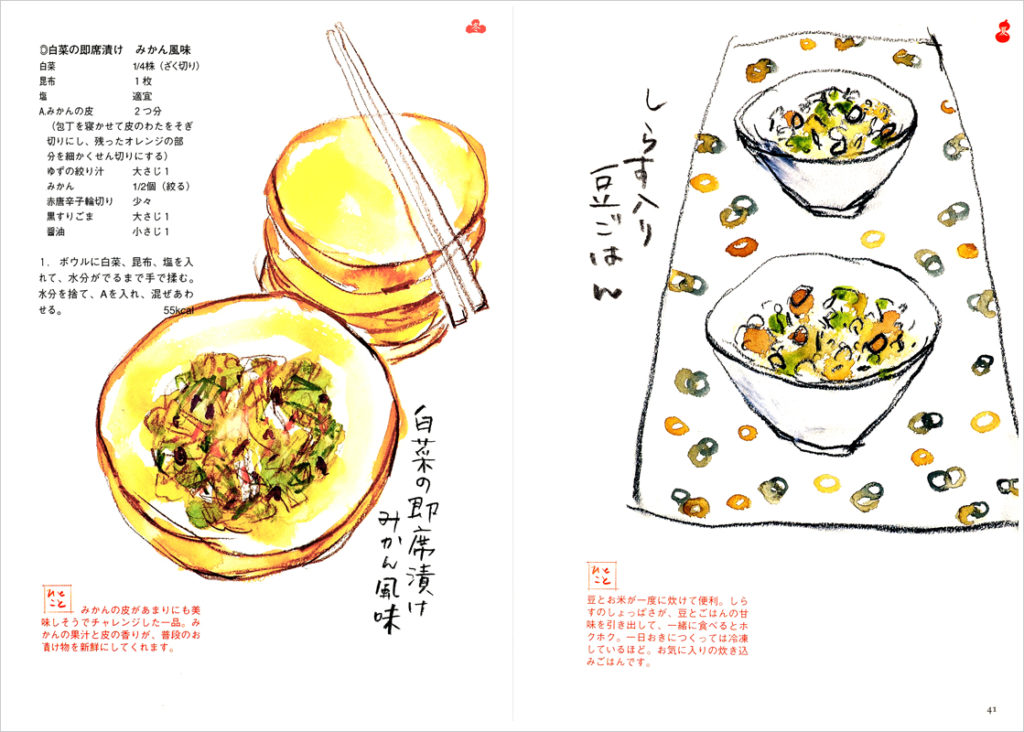 冬
◎白菜の即席漬け　みかん風味
白菜　1/4株（ざく切り）
昆布　1枚
塩　適宜
A.みかんの皮　2つ分
（包丁を寝かせて皮のわたをそぎ
切りにし、残ったオレンジの部
分を細かくせん切りにする）
ゆずの絞り汁　大さじ1
みかん　1/2個（絞る）
赤唐辛子輪切り　少々
黒すりごま　大さじ1
醤油　小さじ1
1.　ボウルに白菜、昆布、塩を入
れて、水分がでるまで手で揉む。
水分を捨て、Aを入れ、混ぜあわ
せる。　55kcal
白菜の即席漬け
みかん風味
ひと
こと
みかんの皮があまりにも美
味しそうでチャレンジした一品。み
かんの果汁と皮の香りが、普段のお
漬け物を新鮮にしてくれます。
しらす入り
豆ごはん
ひと
こと
豆とお米が一度に炊けて便利。しら
すのしょっぱさが、豆とごはんの甘
味を引き出して、一緒に食べるとホ
クホク。一日おきにつくっては冷凍
しているほど。お気に入りの炊き込
みごはんです。
41